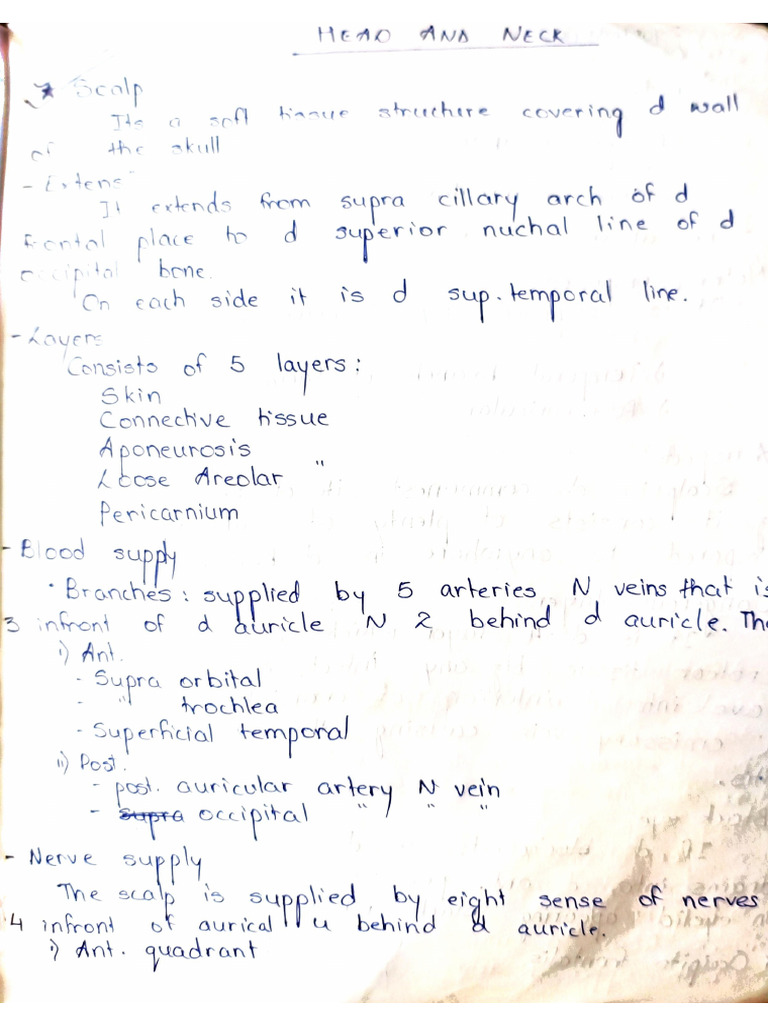 HEAD AND NECK
* Scalp
Its a soft tissue structure covering d wall
of the skull
- Extens"
It extends from supra cillary arch of d
frontal place to d superior nuchal line of d
occipital bone.
On each side it is d sup. temporal line.
- Layers
Consists of 5 layers:
Skin
Connective tissue
Aponeurosis
Loose Areolar "
Pericarnium
- Blood supply
• Branches: supplied by 5 arteries N veins that is
3 infront of d auricle N 2 behind d auricle. Th
i) Ant.
- Supra orbital
- " trochlea
- Superficial temporal
ii) Post.
- post. auricular artery N vein
- supra occipital " " "
- Nerve supply
The scalp is supplied by eight sense of nerves
4 infront of aurical 4 behind d auricle.
i) Ant. quadrant